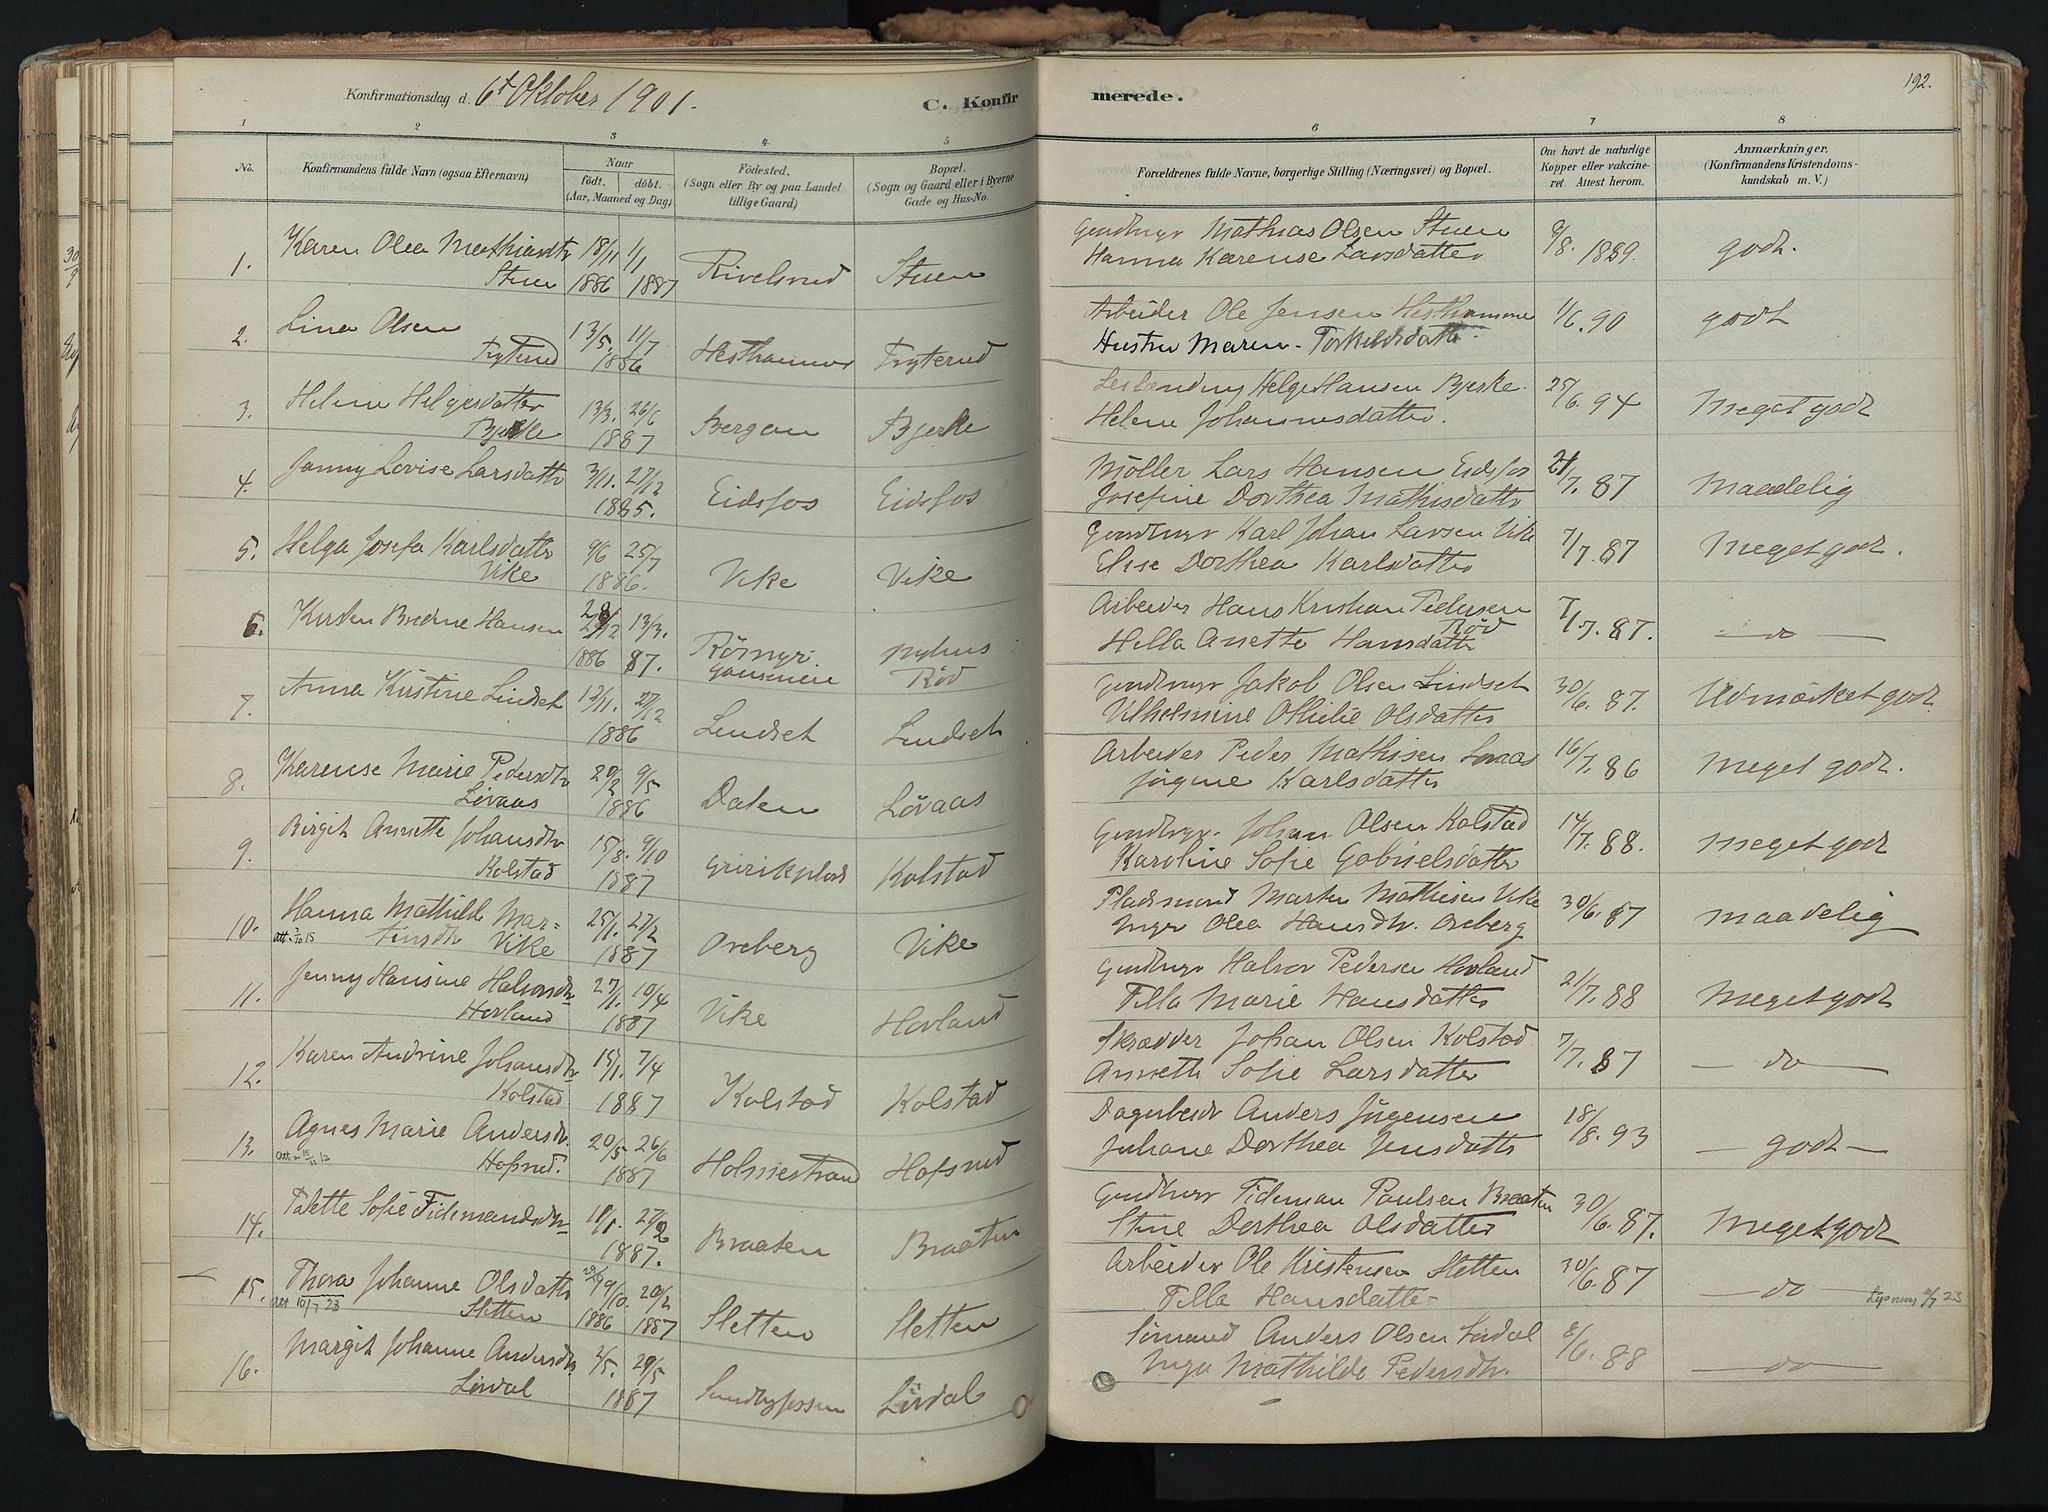 Konfirmationsdag d. 6t Oktober 1901.
C. Konfirmerede.
192.
1 2 3 4 5 6 7 8
No.
Konfirmandens fulde Navn (ogsaa Efternavn)
Naar
født. døbt.
(Aar, Maaned og Dag)
Fødested.
(Sogn eller By og paa Landet
tillige Gaard)
Bopæl.
(Sogn og Gaard eller i Byerne
Gade og Hus-No.
Forældrenes fulde Navne, borgerlige Stilling (Næringsvei) og Bopæl.
Om havt de naturlige
Kopper eller vakcine-
ret. Attest herom.
Anmærkninger.
(Konfirmandens Kristendoms-
kundskab m. V.)
1. Karen Olea Mathiasdtr 18/11 1/1
Stuen 1886 1887 Rivelsrud Stuen
Mathias Olsen Stuen
Hanna Karense Larsdatter
9/8. 1889. godt.
2. Lina Olsen 13/5. 11/7
Fryterud 1886 Hesthammer Fryterud
Arbeider Ole Jensen Hesthammer
Hustru Maren Torkeldsdatter
1/6. 90 godt
3. Helene Helgesdatter 13/3. 26/6
Bjerke 1887 Bergan Bjerke
Leilending Helge Hansen Bjerke
Helene Johannesdatter.
25/6. 94 Meget godt
4. Janny Lovise Larsdattr 3/11. 27/12
1885. Eidsfos Eidsfos
Møller Lars Hansen Eidsfos
Josefine Dorthea Mathisdatter
21/7. 87 Maadelig
5. Helga Josefa Karlsdatter 9/6 25/7
Vike 1886. Vike Vike
Karl Johan Larsen Vike
Else Dorthea Karlsdatter
7/7. 87 Meget godt.
6. Kirsten Bredine Hansen 28/12 13/3.
1886 87. nyhus
Rød
Arbeider Hans Kristian Pedersen
Rød
Hella Anette Hansdatter
7/7. 87. – do –
7. Anna Kristine Lindset 12/11. 27/12
1886 Lindset Lindset
Jakob Olsen Lindset
Vilhelmine Othilie Olsdatter
30/6. 87. Udmærket godt.
8. Karense Marie Pedersdtr 20/2 9/5
Løvaas 1886 Dalen Løvaas
Arbeider Peder Mathisen Løvaas
Jørgine Karlsdatter
16/7. 86 Meget godt.
9. Birgit Annette Johansdtr 15/8. 9/10
Kolstad 1887 Kolstad
Johan Olsen Kolstad
Karoline Sofie Gabrielsdatter
14/7. 88. Meget godt
10. Hanna Mathilde Mar=
tinsdtr Vike 25/1. 27/2
1887 Oreberg Vike
Pladsmand Martin Mathisen Vike
Inger Olea Hansdtr. Oreberg
30/6. 87 maadelig
11. Jenny Hansine Halvorsdtr 27/1. 10/4
Hovland 1887 Vike Hovland
Halvor Pedersen Hovland
Tella Marie Hansdatter
21/7. 88 Meget godt
12. Karen Andrine Johansdtr 15/1. 7/4
Kolstad 1887 Kolstad Kolstad
Skrædder Johan Olsen Kolstad
Anneth Sofie Larsdatter
7/7. 87 – do –
13. Agnes Marie Andersdr. 20/5 26/6
Hofsrud. 1887 Holmestrand Hofsrud
Dagarbeidr Anders Jørgensen
Juliane Dorthea Jensdatter
18/8. 93 – godt –
14. Palette Sofie Tidemandsdtr 11/1. 27/2
1887. Braaten Braaten
Tideman Paulsen Braaten
Stine Dorthea Olsdatter
30/6. 87. Meget godt
15. Thora Johanne Olsdatter 19/10. 20/2
Att 10/7 23 Sletten 1886 1887 Sletten Sletten
Arbeider Ole Kristensen Sletten
Tella Hansdatter
30/6. 87 – do – Lysning 23
16. Margit Johanne Andersdtr 2/5. 29/5
Lørdal 1887 Lørdal
Sømand Anders Olsen Lørdal
Inga Mathilde Pedersdtr.
8/6. 88 – do –